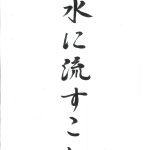 水に流すこ